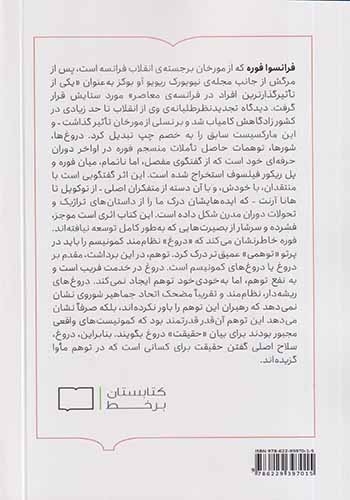 فرانسوا فوره که از مورخان برجسته‌ی انقلاب فرانسه است، پس از
مرگش از جانب مجله‌ی نیویورک ریویو آو بوکز به‌عنوان «یکی از
تأثیرگذارترین افراد در فرانسه‌ی معاصر» مورد ستایش قرار
گرفت. دیدگاه تجدیدنظرطلبانه‌ی وی از انقلاب تا حد زیادی در
کشور زادگاهش کامیاب شد و بر نسلی از مورخان تأثیر گذاشت - و
این مارکسیست سابق را به خصم چپ تبدیل کرد. دروغ‌ها،
شورها، توهمات حاصل تأملات منسجم فوره در اواخر دوران
حرفه‌ای خود است که از گفتگوی مفصل، اما ناتمام، میان فوره و
پل ریکور فیلسوف استخراج شده است. این اثر گفتگویی است با
منتقدان، با خودش، و با آن دسته از متفکران اصلی - از توکویل تا
هانا آرنت - که ایده‌هایشان درک ما را از داستان‌های تراژیک و
تحولات دوران مدرن شکل داده است. این کتاب اثری است موجز،
فشرده و سرشار از بصیرت‌هایی که به‌طور کامل توسعه نیافته‌اند.
فوره خاطرنشان می‌کند که «دروغ» نظام‌مند کمونیسم را باید در
پرتو «توهمی» عمیق‌تر درک کرد. توهم، در این برداشت، مقدم بر
دروغ یا دروغ‌های کمونیسم است. دروغ در خدمت فریب است و
به نفع توهم، اما به‌خودی‌خود توهم ایجاد نمی‌کند. دروغ‌های
ریشه‌دار، نظام‌مند و تقریباً مضحک اتحاد جماهیر شوروی نشان
نمی‌دهد که رهبران این توهم را باور نکرده‌اند، بلکه صرفاً نشان
می‌دهد این توهم آن‌قدر قدرتمند بود که کمونیست‌های واقعی
مجبور بودند برای بیان «حقیقت» دروغ بگویند. بنابراین، دروغ،
سلاح اصلی گفتن حقیقت برای کسانی است که در توهم مأوا
گزیده‌اند.
کتابستان
برخط
ISBN: 978-622-95970-1-5
9786229397015